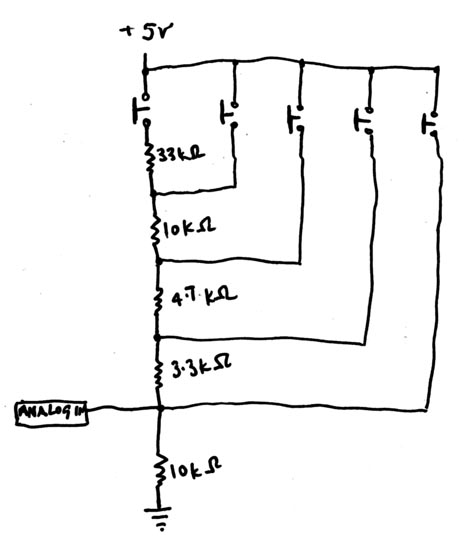 +5v
33kΩ
10kΩ
4.7kΩ
3.3kΩ
ANALOG IN
10kΩ